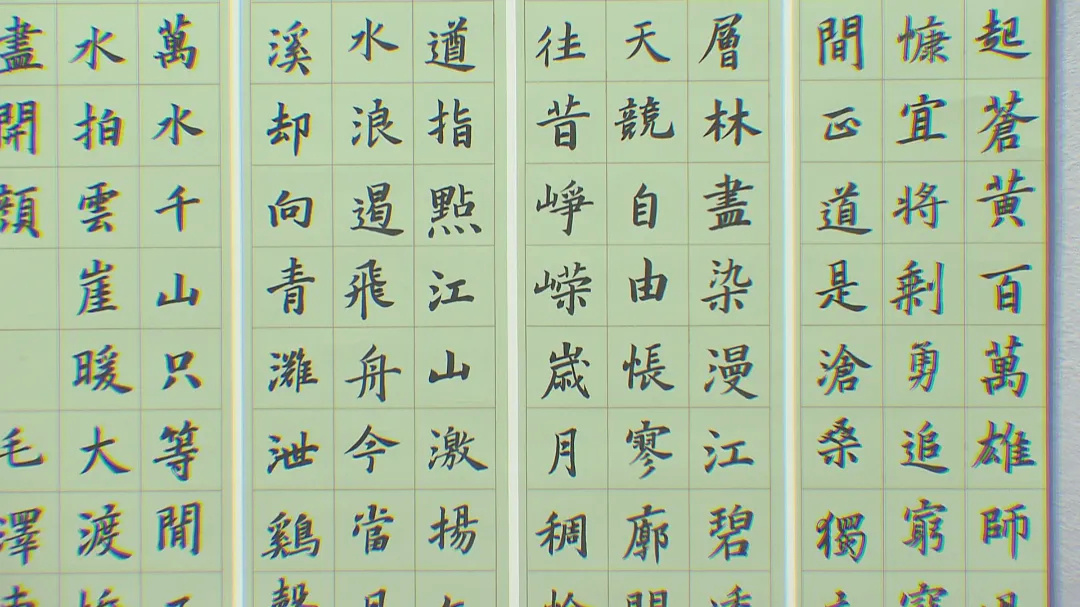 起蒼黄百萬雄師
慷宜將剩勇追窮寇
間正道是滄桑獨
層林盡染漫江碧透
天競自由悵寥廓問
往昔崢嶸嵗月稠恰
遒指點江山激揚
水浪遏飛舟今當
溪却向青灘泄鷄聲
萬水千山只等閒
水拍雲崖暖大渡橋
盡開顏
毛澤東